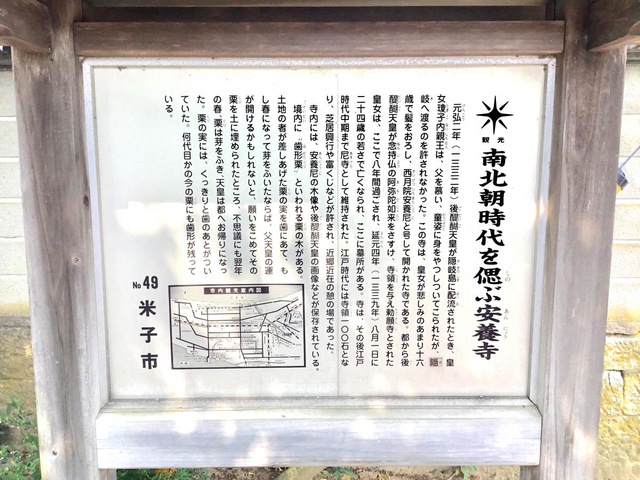 観光
南北朝時代を偲ぶ安養寺
しの
あん
にょう
元弘二年(一三三二年)後醍醐天皇が隠岐島に配流されたとき、皇
女瓊子内親王は、父を慕い、童姿に身をやつしついてこられたが、隠
岐へ渡るのを許されなかった。この寺は、皇女が悲しみのあまり十六
歳で髪をおろし、西月院安養尼と号して開かれた寺である。都から後
醍醐天皇が念持仏の阿弥陀如来をさずけ、寺領を与え勅願寺とされた
皇女は、ここで八年間過ごされ、延元四年(一三三九年)八月一日に
二十四歳の若さで亡くなられ、ここに墓所がある。寺は、その後江戸
時代中期まで尼寺として維持された。江戸時代には寺領一〇〇石とな
り、芝居興行や富くじなどが許され、近郷近在の憩の場であった。
寺内には、安養尼の木像や後醍醐天皇の画像などが保存されている。
境内に〝歯形栗〟といわれる栗の木がある。
土地の者が差しあげた栗の実を歯にあて、も
し春になって芽をふいたならば、父天皇の運
が開けるかもしれないと、願いをこめてその
栗を土に埋められたところ、不思議にも翌年
の春、栗は芽をふき、天皇は都へお帰りになっ
た。栗の実には、くっきりと歯のあとがつい
ていた。何代目かの今の栗にも歯形が残って
いる。
市内観光案内図
No.49
米子市